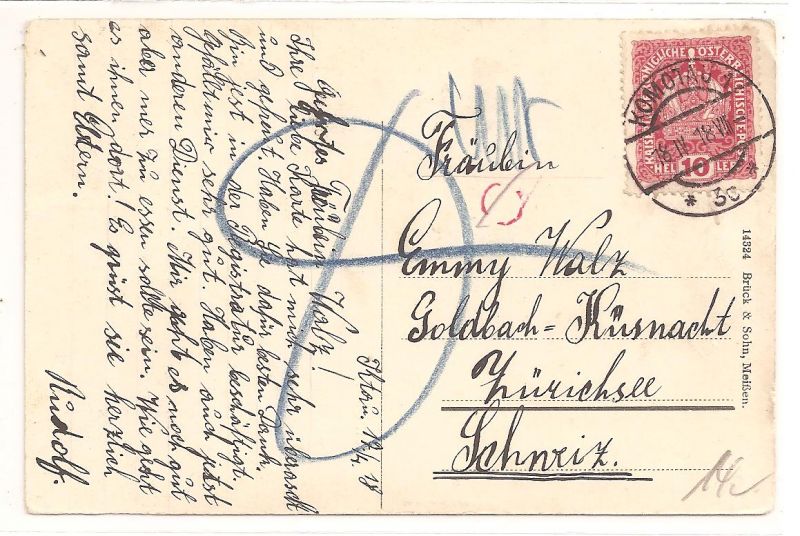 Ktau, 18/4. 18
Geehrtes Fräulein Walz!
Ihre liebe Karte hat mich sehr überrascht
und gefreut. Haben Sie dafür besten Dank.
Bin jetzt in der Registratur beschäftigt.
Gefällt mir sehr gut. Haben auch jetzt
anderen Dienst. Mir geht es noch gut
aber mer zu essen sollte sein. Wie geht
es ihnen dort! Es grüst sie herzlich
samt Eltern.
Rudolf.
Fräulein
Emmy Walz
Goldbach-Küsnacht
Zürichsee
Schweiz.
KAISERLICHE KÖNIGLICHE ÖSTERREICHISCHE POST
10
HELLER
KOMOTAU 1
18.IV.18
* 3c *
14324 Brück & Sohn, Meißen.